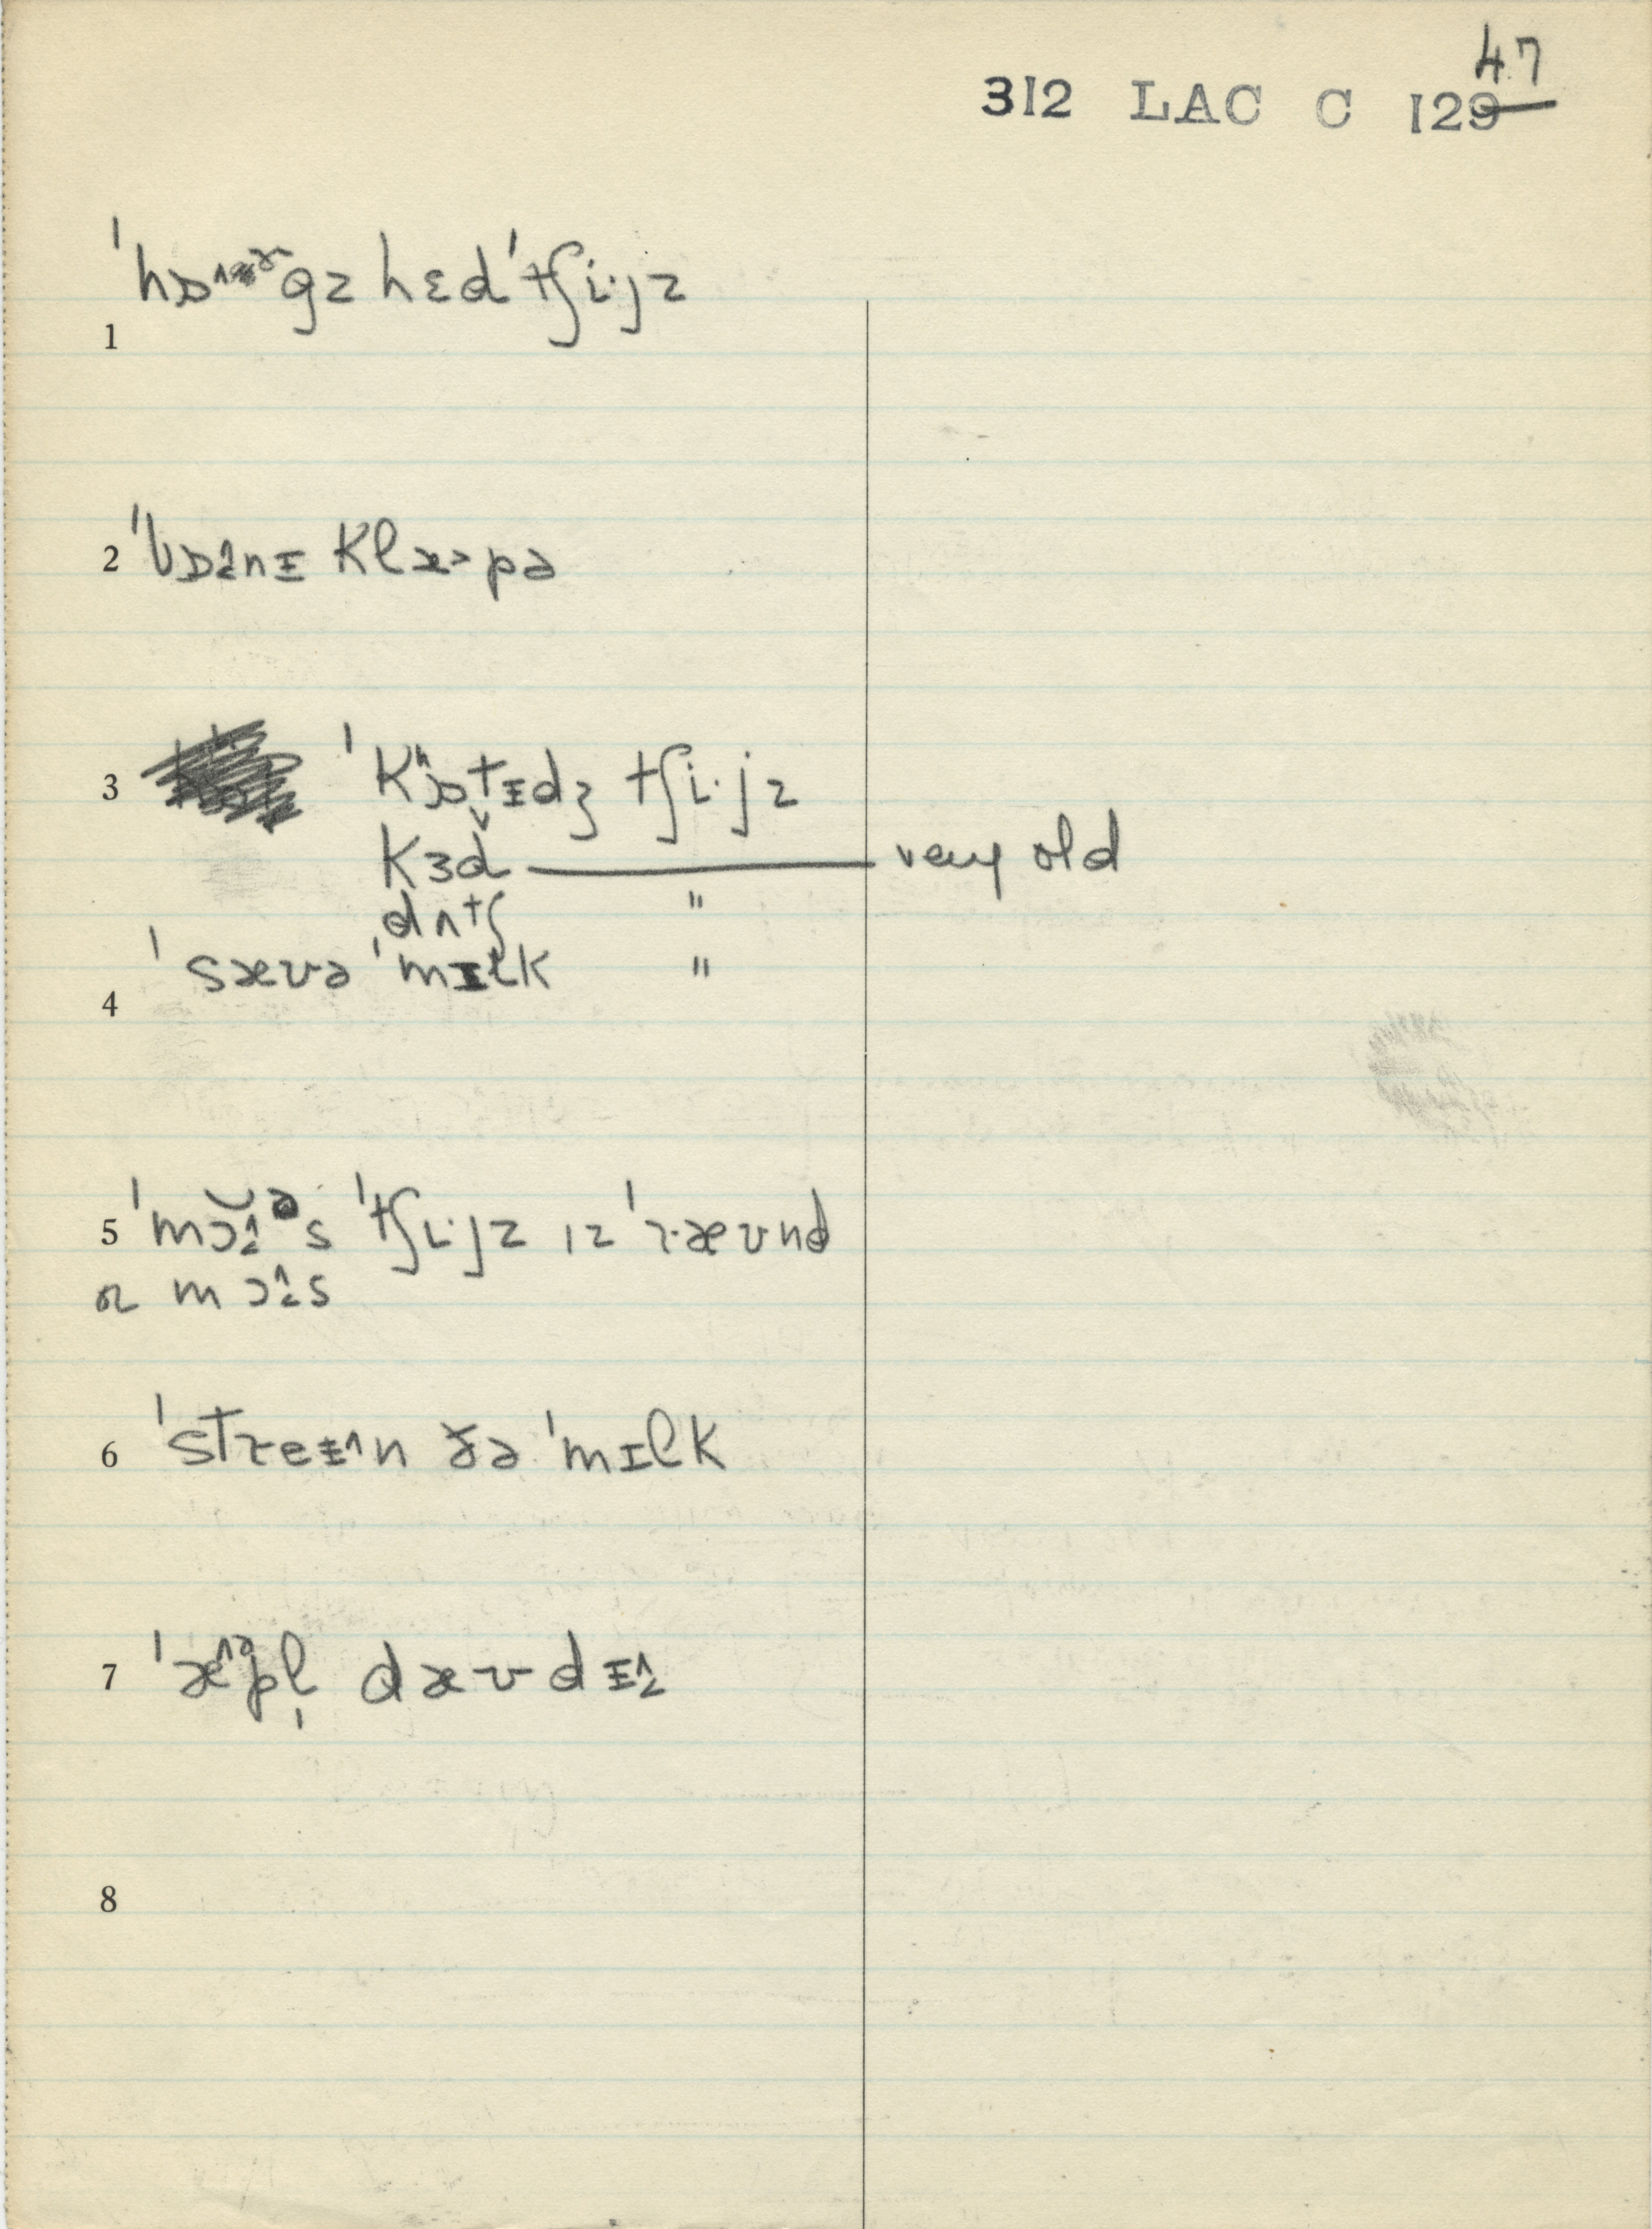 47
312 LAC C 129
ˈhɒ˄ɤgz hɛdˈtʃi·jz
1
2 ˈbɒ˄nɪ klæ˃pə
3 ˈkɒtɪdʒ tʃi·jz
kɜd — very old
dʌtʃ "
ˈsævə ˈmɪlk "
4
5 ˈmɔ˄ə̆s ˈtʃi·jz ɪz ˈræʊnd
or mɔ˄s
6 ˈstreɪ˄n ðə ˈmɪlk
7 ˈæ˄ᵊpl̩ dæʊdɪ˄
8